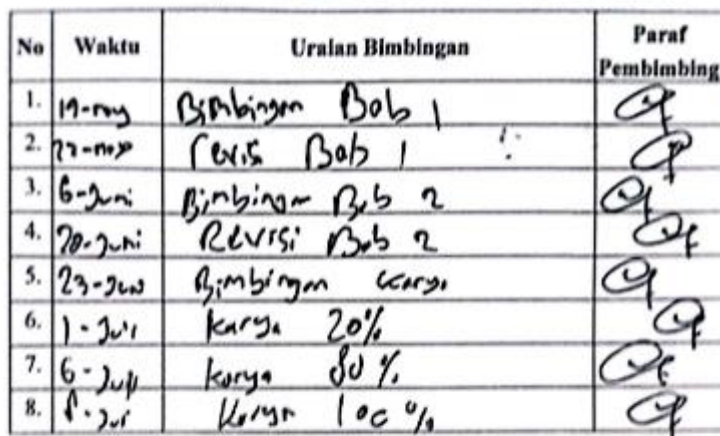 No Waktu Uraian Bimbingan Paraf Pembimbing
1. 19-may Bimbingan Bab 1
2. 22-may revisi Bab 1
3. 6-Juni Bimbingan Bab 2
4. 20-Juni Revisi Bab 2
5. 23-Jun Bimbingan Karya
6. 1-Juli Karya 20%
7. 6-Juli Karya 80%
8. 8-Juli Karya 100%